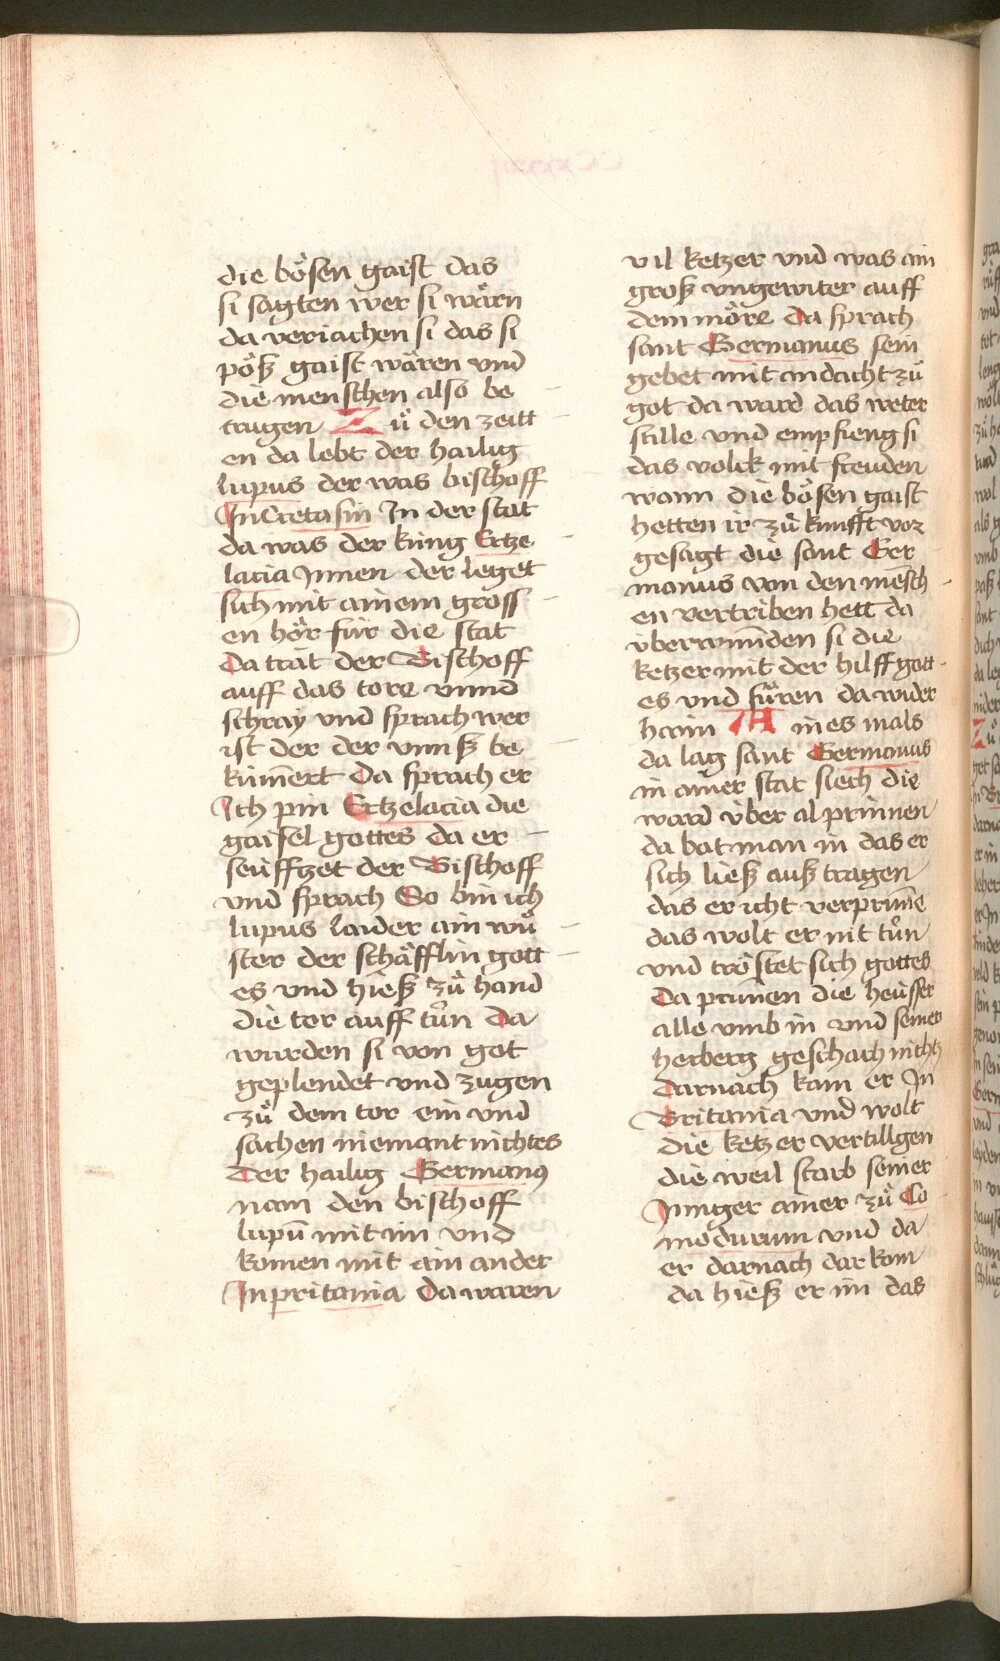 die bösen gaist das
si sagten wer si wärn
da veriachen si das si
pöß gaist wären vnd
die menschen also be
trugen Zů den zeitt
en da lebt der hailig
lupus der was bischoff
In Cretasin In der stat
da was der küng Ertze
lacia Jnnen der leget
sich mit ainem gröss
en hör für die stat
Da trat der Bischoff
auff das tore vnnd
schray vnd sprach wer
ist der der vnnß be
kūmert Da sprach er
Ich pin Ertzelacia die
gaisel gottes da er
seüfftzet der Bischoff
vnd sprach So bin ich
lupus laider ain wů
ster der schäfflin gott
es vnd hieß zů hand
die tor auff tůn Da
wurden si von got
geplendet vnd zugen
zů dem tor ein vnd
sachen niemant nichtes
Der hailig Germanus
nam den bischoff
lupū mit im vnd
komen mit ain ander
In pritania Da waren
vil ketzer vnd was ain
groß vngewiter auff
dem möre Da sprach
sant Germanus sein
gebet mit andacht zů
got da ward das weter
stille vnd empfieng si
das volck mit freuden
wann die bösen gaist
hetten ir zů kunfft vor
gesagt die sant Ger
manus von den mēsch
en vertriben hett da
überwūnden si die
ketzer mit der hilff gott
es vnd füren da wider
haim Aines mals
da lag sant Germanus
in ainer stat siech die
ward über al prinnen
da bat man in das er
sich ließ auß tragen
das er icht verprūne
das wolt er nit tůn
vnd tröstet sich gottes
Da prunen die heüsser
alle vmb in vnd seiner
herberg geschach nichtz
Darnach kam er In
Britania vnd wolt
die ketzer vertillgen
die weil starb seiner
Junger ainer zů Co
modurum vnd da
er darnach dar kom
da hieß er im das